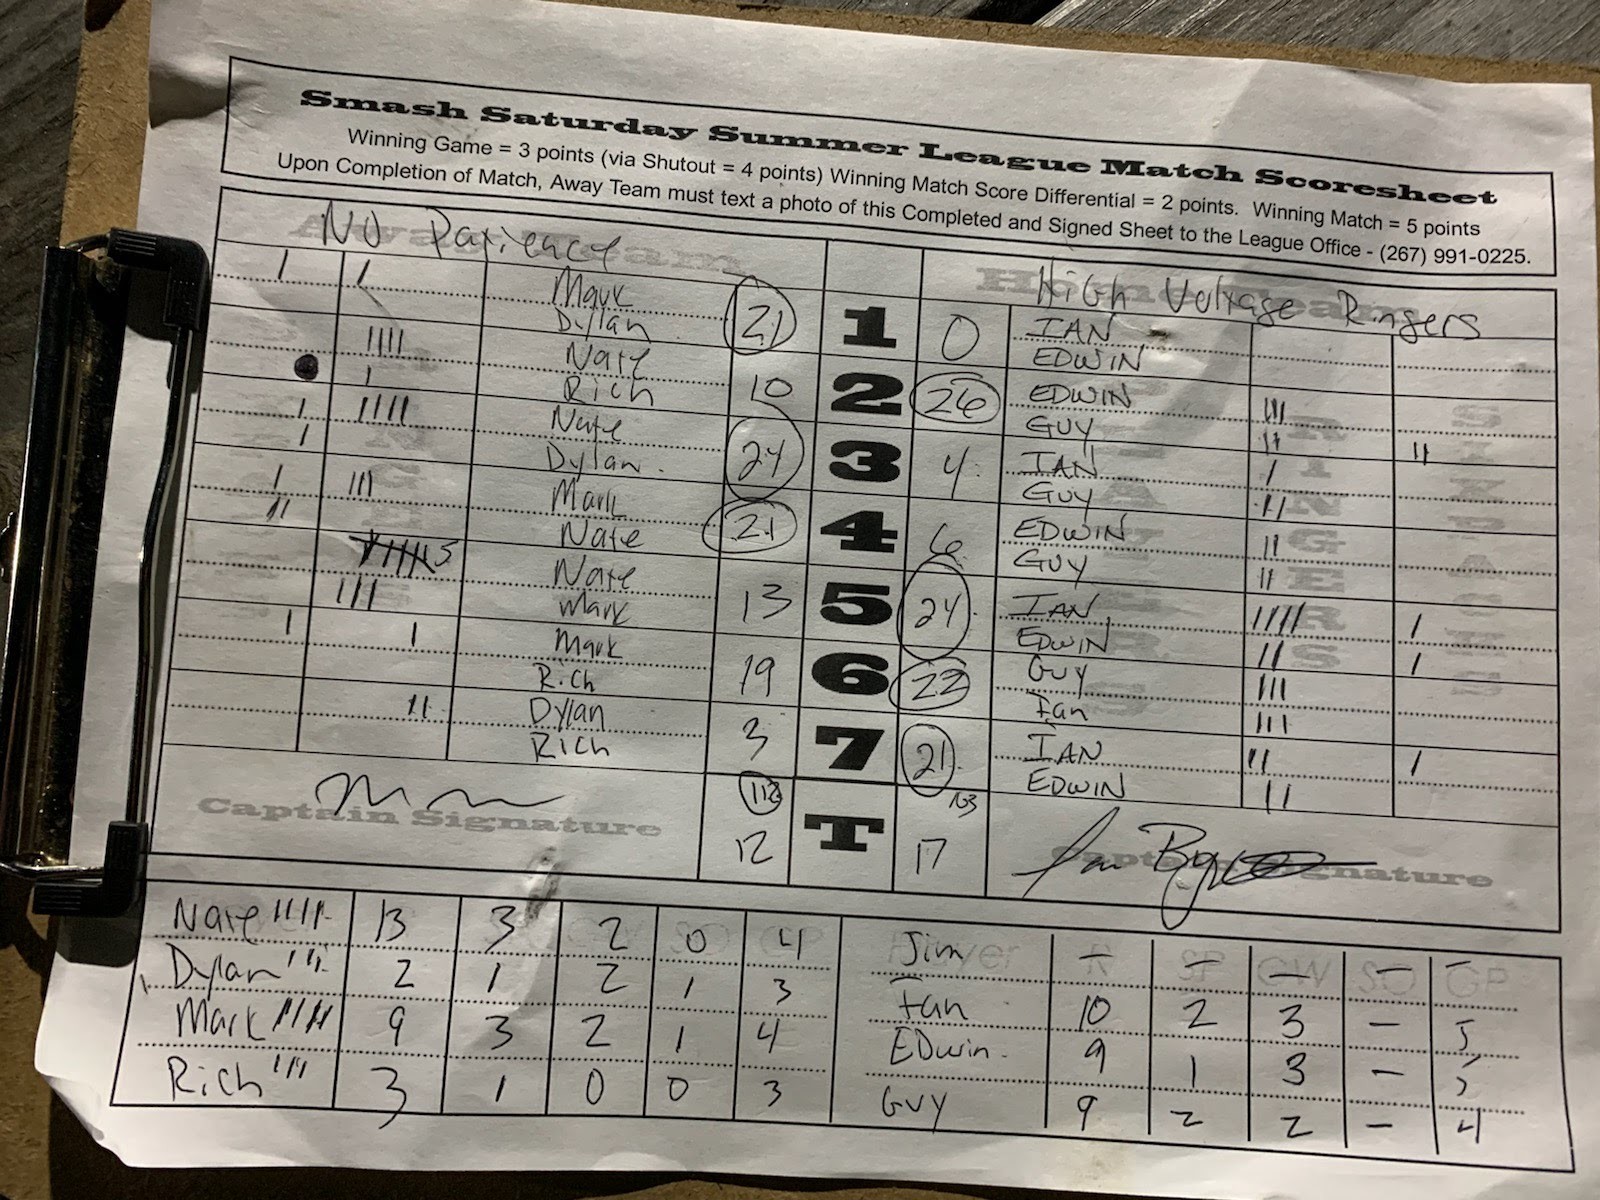 Smash Saturday Summer League Match Scoresheet
Winning Game = 3 points (via Shutout = 4 points) Winning Match Score Differential = 2 points. Winning Match = 5 points
Upon Completion of Match, Away Team must text a photo of this Completed and Signed Sheet to the League Office - (267) 991-0225.
Away Team
No Patience
Home Team
High Voltage Ringers
Mark
Dylan
21 1 0
IAN
EDWIN
Nate
Rich
10 2 26
EDWIN
GUY
Nate
Dylan
24 3 4
IAN
GUY
Mark
Nate
21 4 6
EDWIN
GUY
5
Nate
Mark
13 5 24
IAN
EDWIN
Mark
Rich
19 6 22
Guy
Ian
Dylan
Rich
3 7 21
IAN
EDWIN
Captain Signature
112 103
12 T 17
Captain Signature
Nate 13 3 2 0 4
Dylan 2 1 2 1 3
Mark 9 3 2 1 4
Rich 3 1 0 0 3
Player R SP GW SO GP
Jim – – – – –
Ian 10 2 3 – 5
EDwin 9 1 3 – 5
GUY 9 2 2 – 4